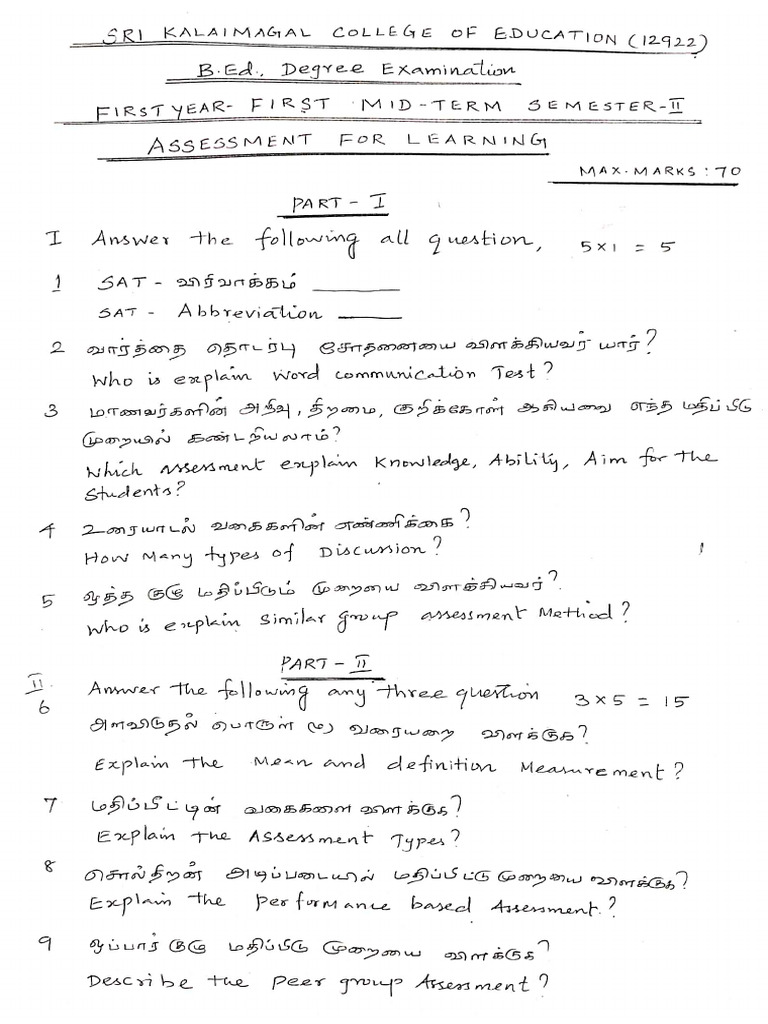 SRI KALAIMAGAL COLLEGE OF EDUCATION (12922)
B.Ed., Degree Examination
FIRST YEAR- FIRST MID-TERM SEMESTER-II
ASSESSMENT FOR LEARNING
MAX.MARKS : 70
PART - I
I Answer the following all question, 5x1 = 5
1 SAT - விரிவாக்கம் ______
SAT - Abbreviation ______
2 வார்த்தை தொடர்பு சோதனையை விளக்கியவர் யார்?
Who is explain Word communication Test?
3 மாணவர்களின் அறிவு, திறமை, குறிக்கோள் ஆகியவை எந்த மதிப்பீடு
முறையில் கண்டறியலாம்?
Which assessment explain Knowledge, Ability, Aim for the
Students?
4 உரையாடல் வகைகளின் எண்ணிக்கை?
How Many types of Discussion?
5 ஒத்த குழு மதிப்பீடும் முறையை விளக்கியவர்?
Who is explain Similar group assessment Method?
PART - II
II Answer the following any three question 3x5 = 15
6 அளவிடுதல் பொருள் (ம) வரையறை விளக்குக?
Explain the Mean and definition Measurement?
7 மதிப்பீட்டின் வகைகளை விளக்குக?
Explain the Assessment Types?
8 சொல்திறன் அடிப்படையில் மதிப்பீட்டு முறையை விளக்குக?
Explain the performance based Assessment.?
9 ஒப்பார் குழு மதிப்பீடு முறையை விளக்குக?
Describe the peer group Assessment?